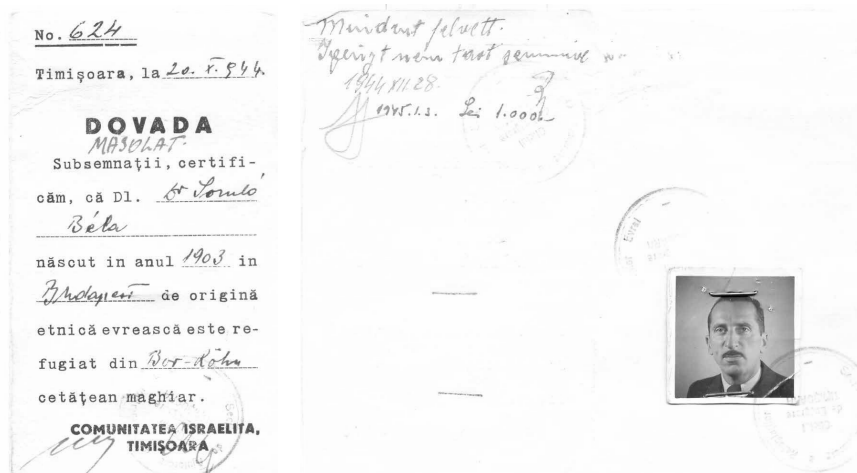 No. 624
Timișoara, la 20. X. 944.
DOVADA
MÁSOLAT.
Subsemnații, certifi-
căm, că Dl. Dr Somló
Béla
născut in anul 1903 in
Budapest de origină
etnică evrească este re-
fugiat din Bor-
cetățean maghiar.
COMUNITATEA ISRAELITA,
TIMIȘOARA
Mindent felvett.
Igényt nem tart semmire
1944 XII. 28.
1945. I. 3. Lei 1.000
Evrei